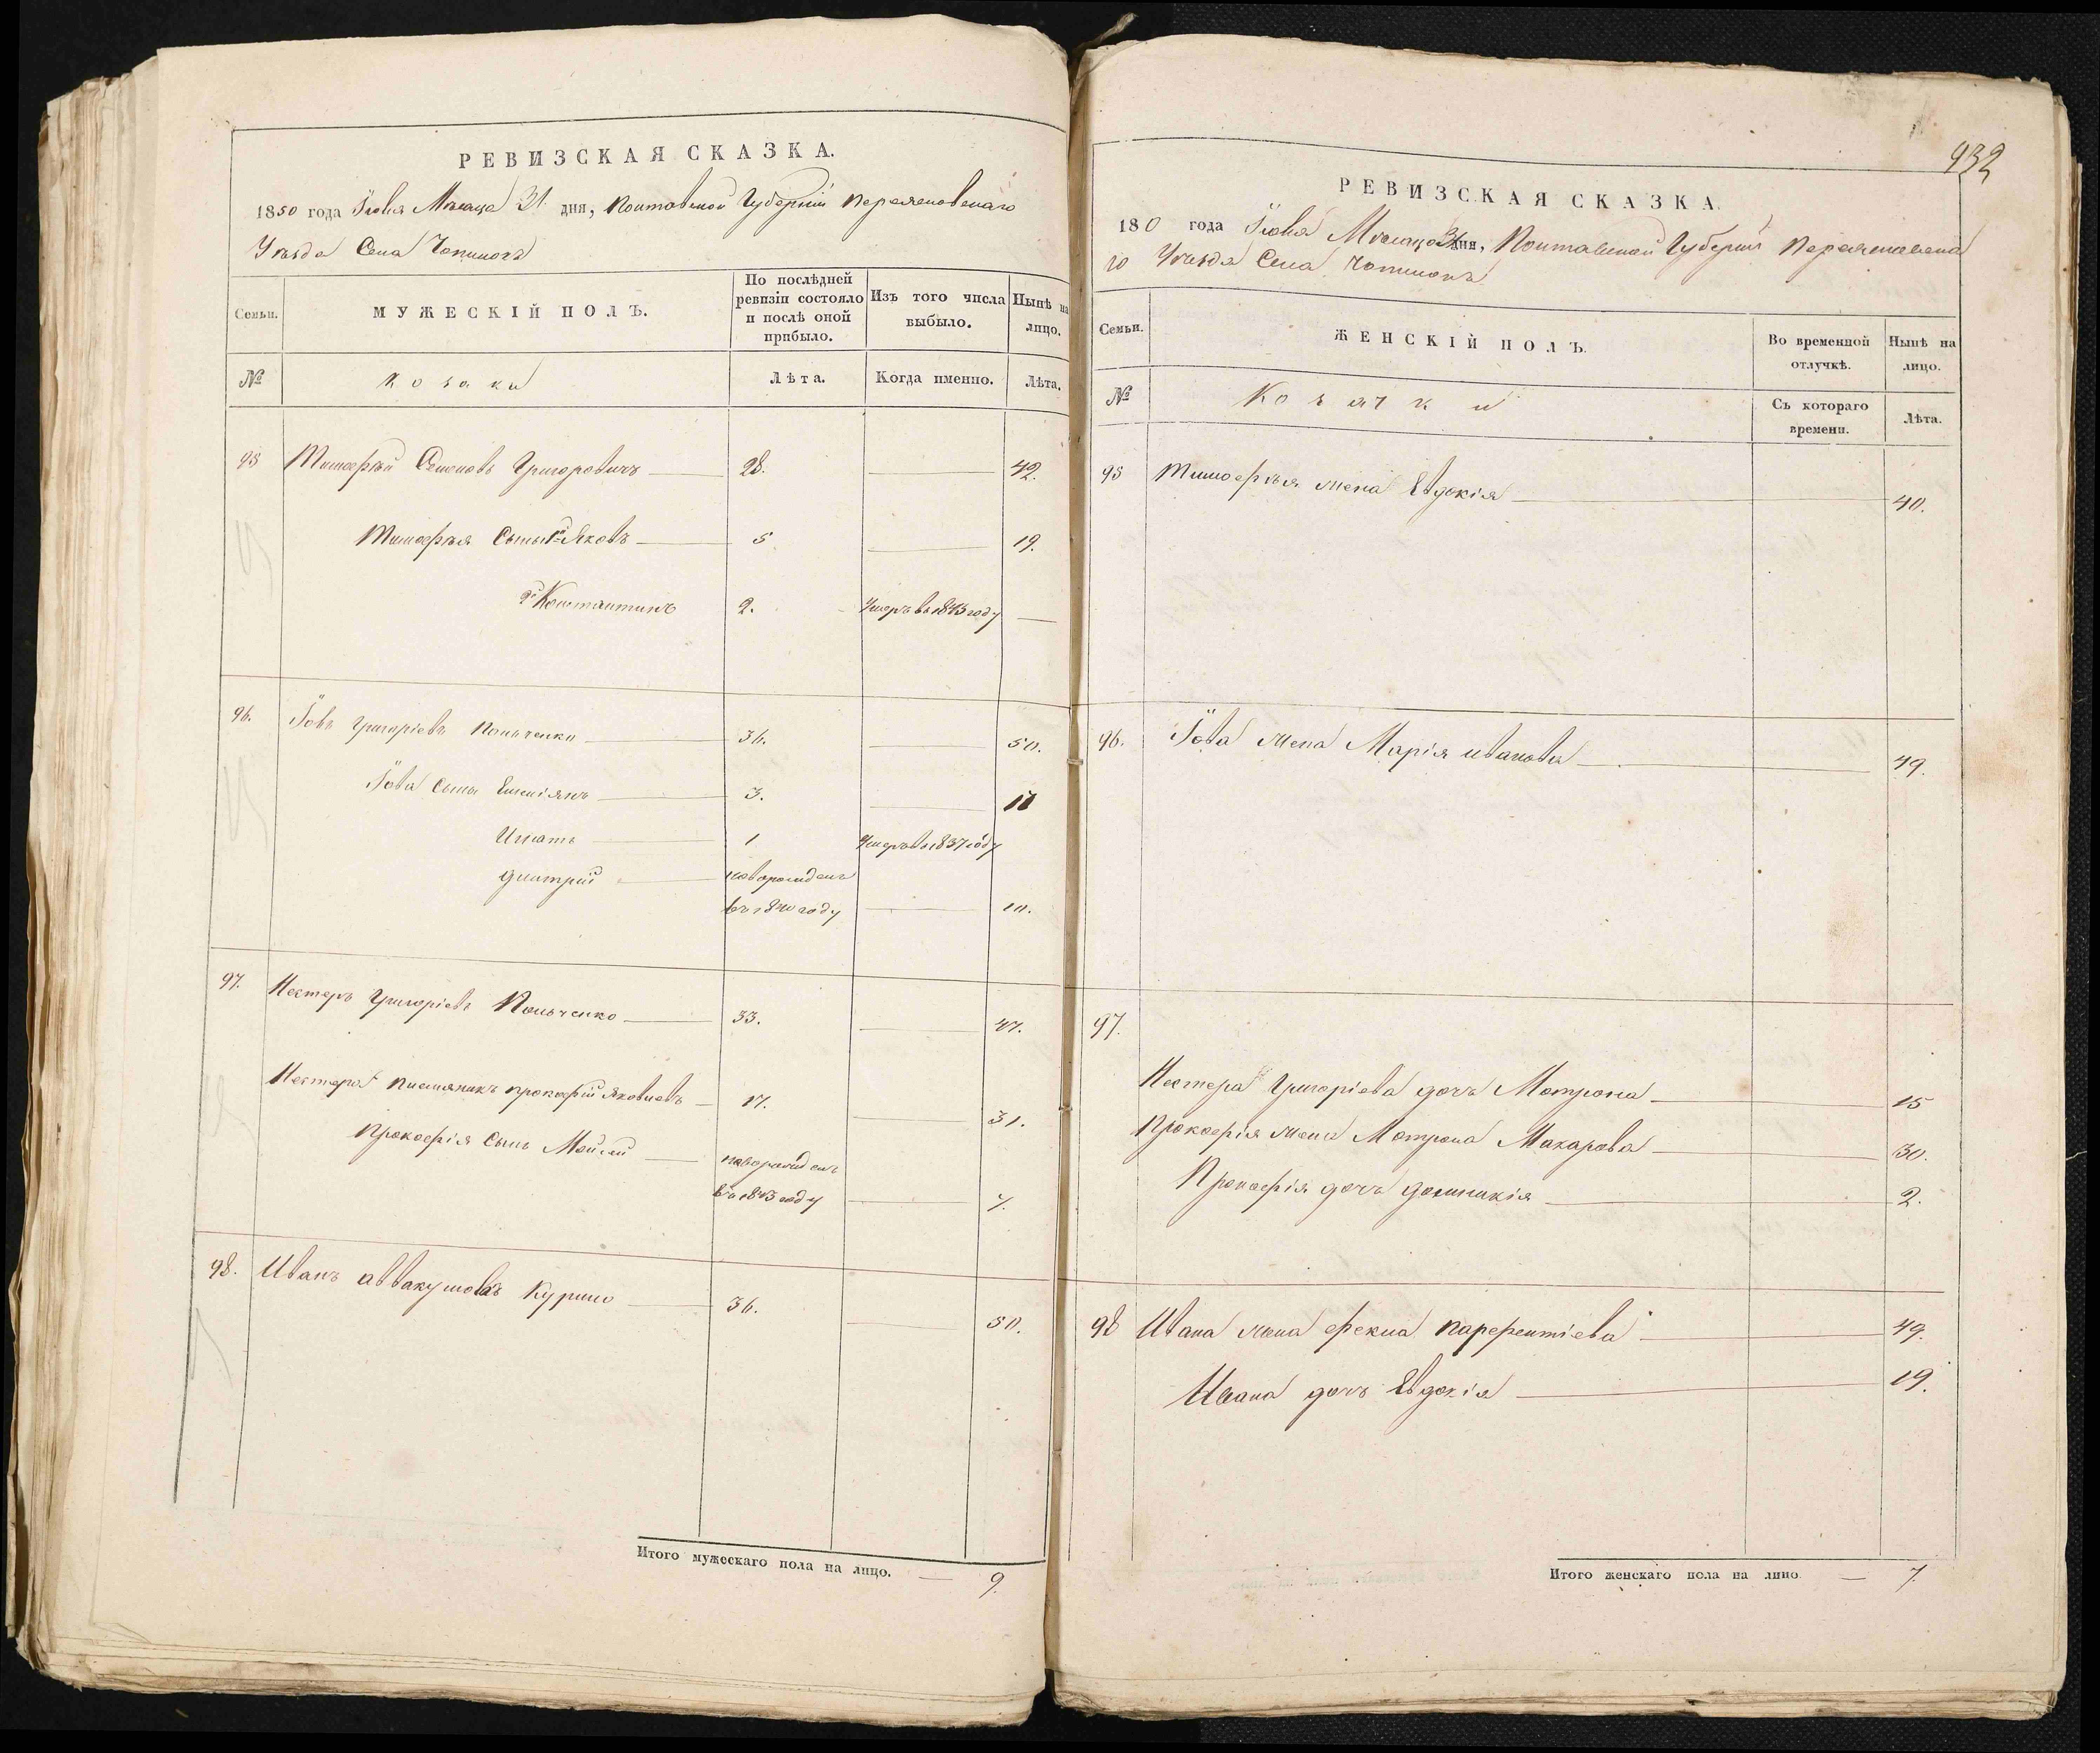 РЕВИЗСКАЯ СКАЗКА.
1850 года Іюня Месяца 31 дня, Полтавской Губерніи Переяславскаго
Уѣзда Села
Семьи.
МУЖЕСКІЙ ПОЛЪ.
По послѣдней ревизіи состояло и послѣ оной прибыло.
Изъ того числа выбыло.
Нынѣ на лицо.
№
Козаки
Лѣта.
Когда именно.
Лѣта.
95 Тимофѣй Семеновъ Григоровичъ 28. 42.
Тимофѣя Сыны 1й Яковъ 5 19.
2й Константинъ 2. Умеръ въ 1843 году
96. Іовъ Григоріевъ 36. 50.
Іова Сыны Емеліянъ 3. 17
Игнатъ 1 Умеръ въ 1837 году
Дмитрій новорожденъ
въ 1840 году 10.
97. Нестеръ Григоріевъ 33. 47.
Нестера племяникъ Прокофій Яковлевъ 17. 31.
Прокофія Сынъ Мойсей новорожденъ
въ 1843 году 7.
98. Иванъ Аввакумовъ Курило 36. 50.
Итого мужескаго пола на лицо. — 9.
932
РЕВИЗСКАЯ СКАЗКА.
180 года Іюня Месяца 31 дня, Полтавской Губерніи Переяславска
го Уѣзда Села
Семьи.
ЖЕНСКІЙ ПОЛЪ.
Во временной отлучкѣ.
Нынѣ на лицо.
№
Козачки
Съ котораго времени.
Лѣта.
95 Тимофѣя жена Евдокія 40.
96. Іова жена Марія Иванова 49.
97.
Нестера Григоріева дочь Мотрона 15
Прокофія жена Мотрона Макарова 30.
Прокофія дочь Домникія 2.
98 Ивана жена Фекла Парфентіева 49.
Ивана дочь Евдокія 19.
Итого женскаго пола на лицо. — 7.